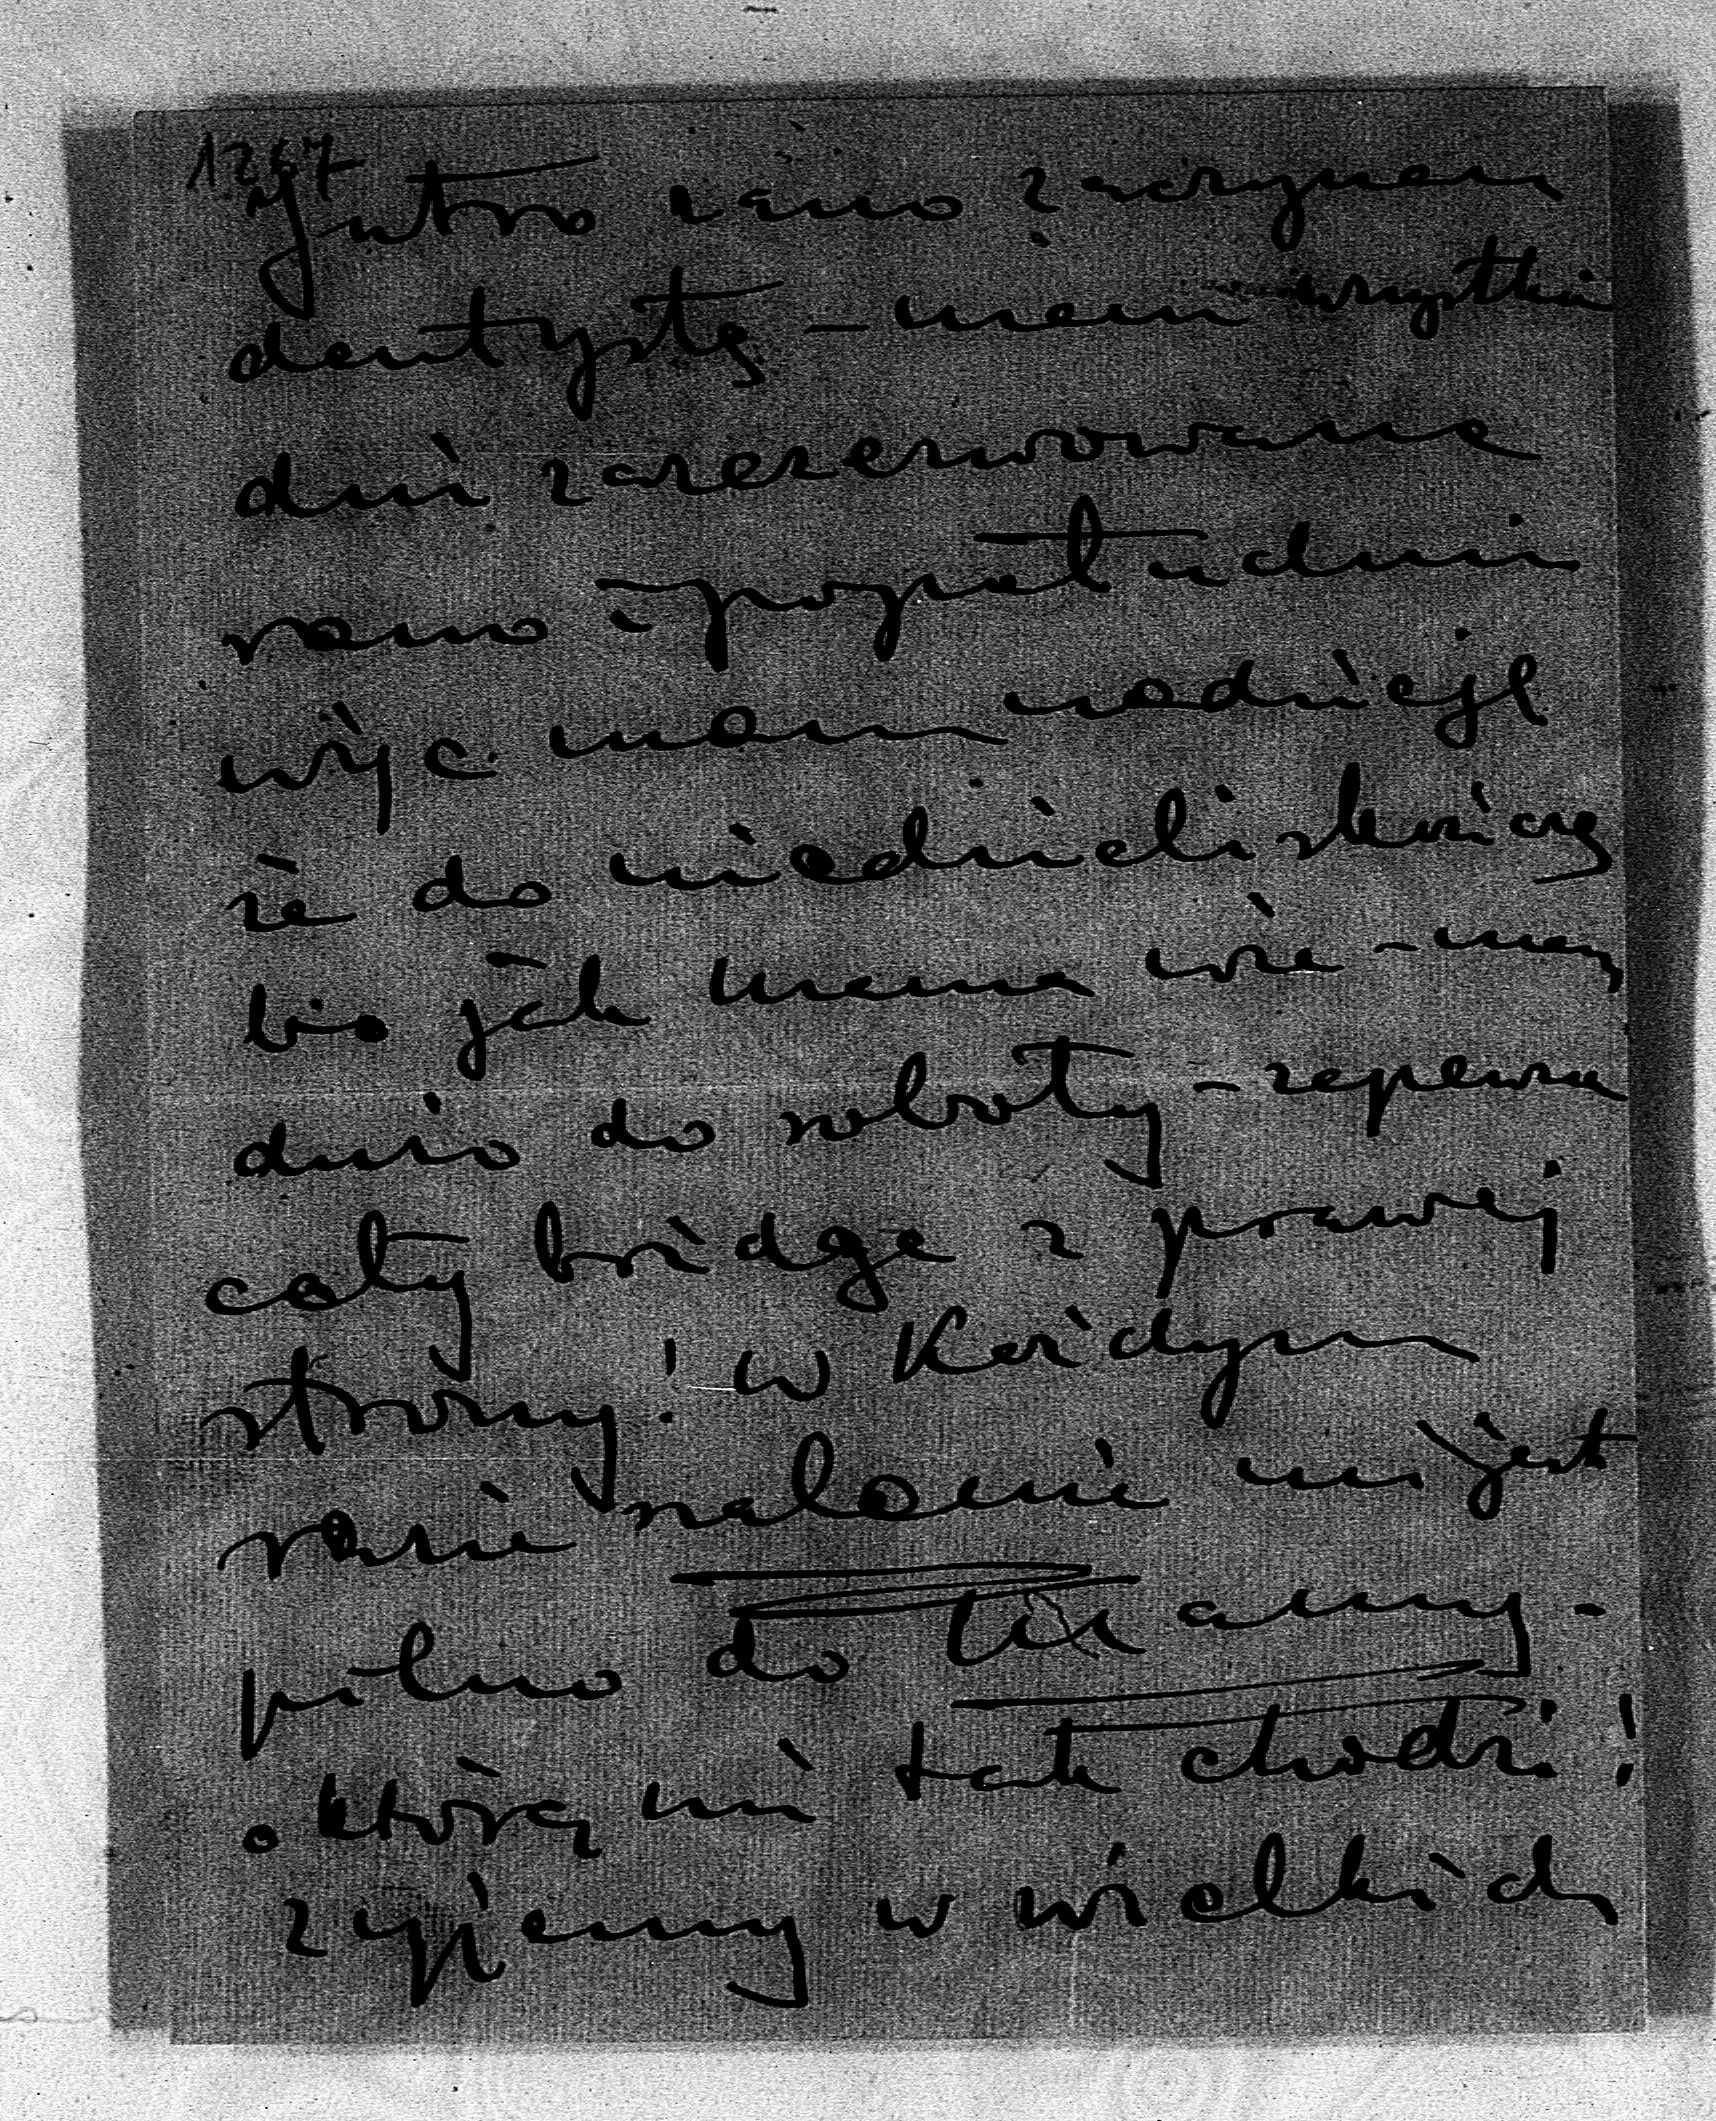 1267
Jutro rano zaczynam
dentystę – mam wszystkie
dni zarezerwowane
rano i popołudniu
więc mam nadzieję
że do niedzieli skończę
bo jak mama wie – mam
dużo do roboty – zapewne
cały bridge z prawej
strony! w każdym
razie szalenie mi jest
pilno do
o którą mi tak chodzi!
żyjemy w wielkich